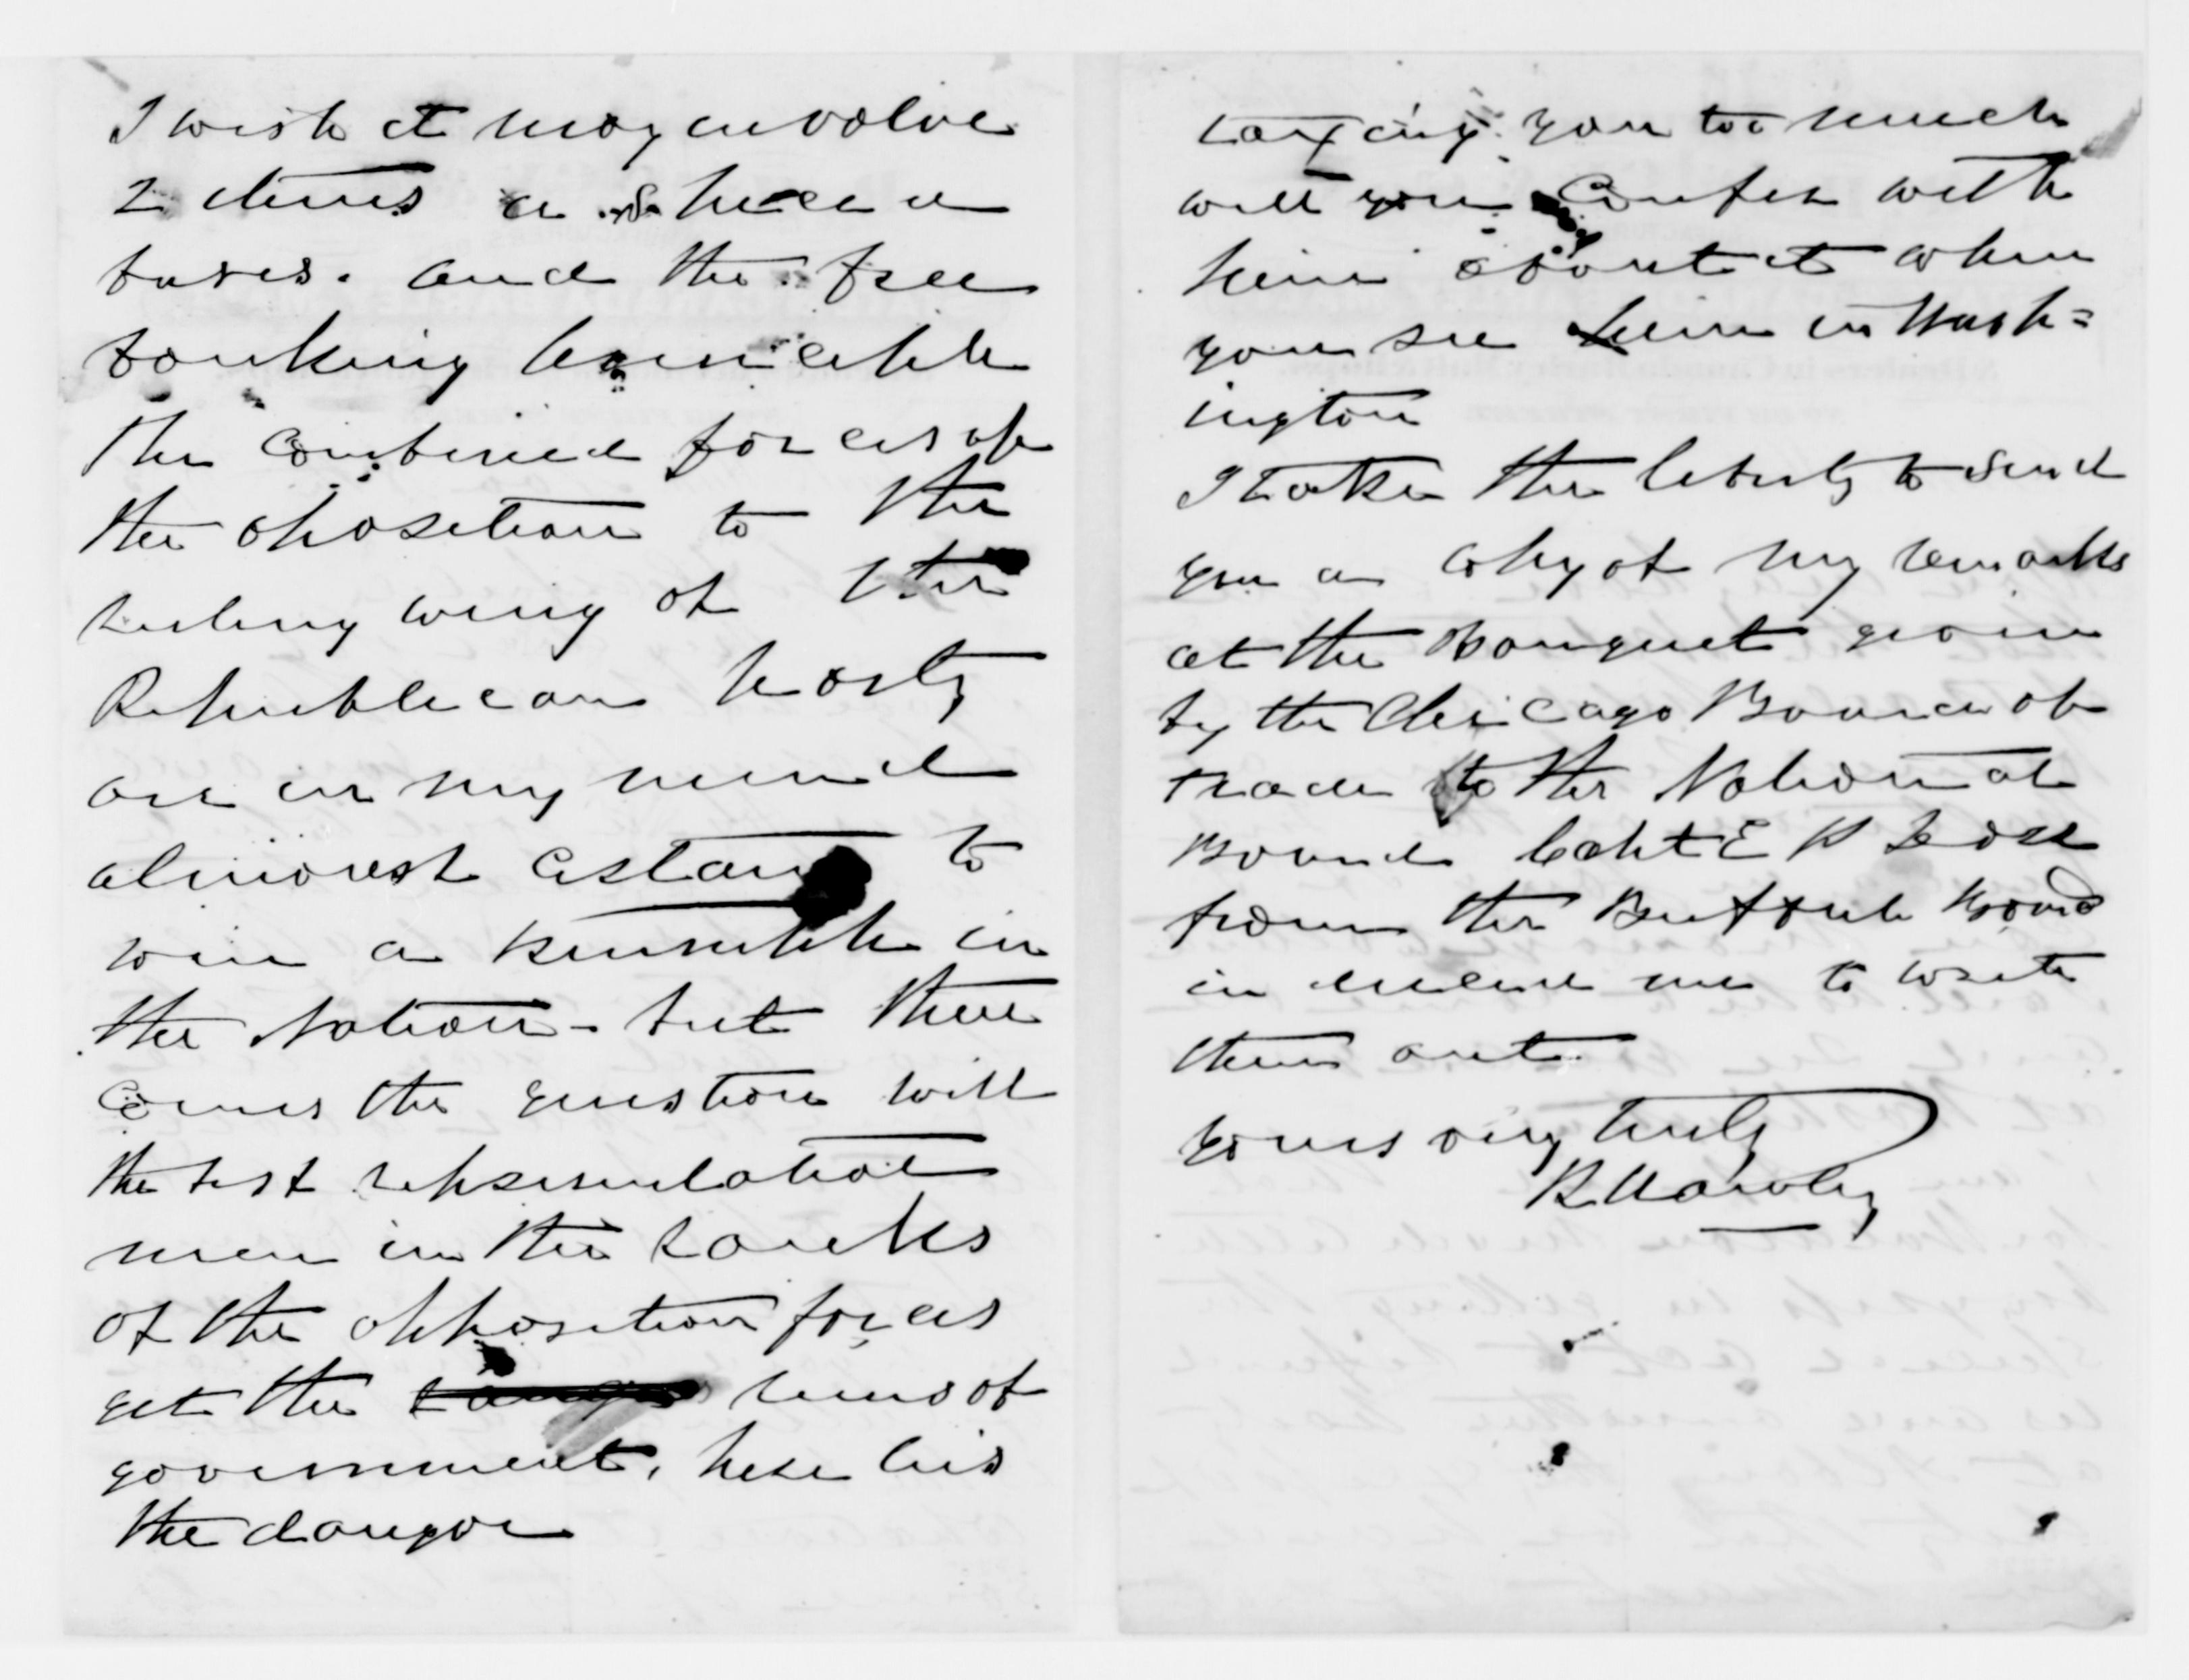 I wish it may involve
2 items a specie
basis. and the free
banking principle
The combined forces of
the oposition to the
ruling wing of the
Republican party
are in my mind
almorst astand to
win a punible in
the Nation - but then
comes the question will
the best representative
men in the ranks
of the opposition forces
get the reins of
government, here lies
the danger
taxing you too much
will you confer with
him about it when
you see him in Wash=
ington
I take the liberty to send
you a copy of my remarks
at the Banquet given
by the Chicago Board of
Trade to the National
Board Capt E P Dorr
from the Buffalo Board
in duced me to write
them out
yours very truly
R Hawley